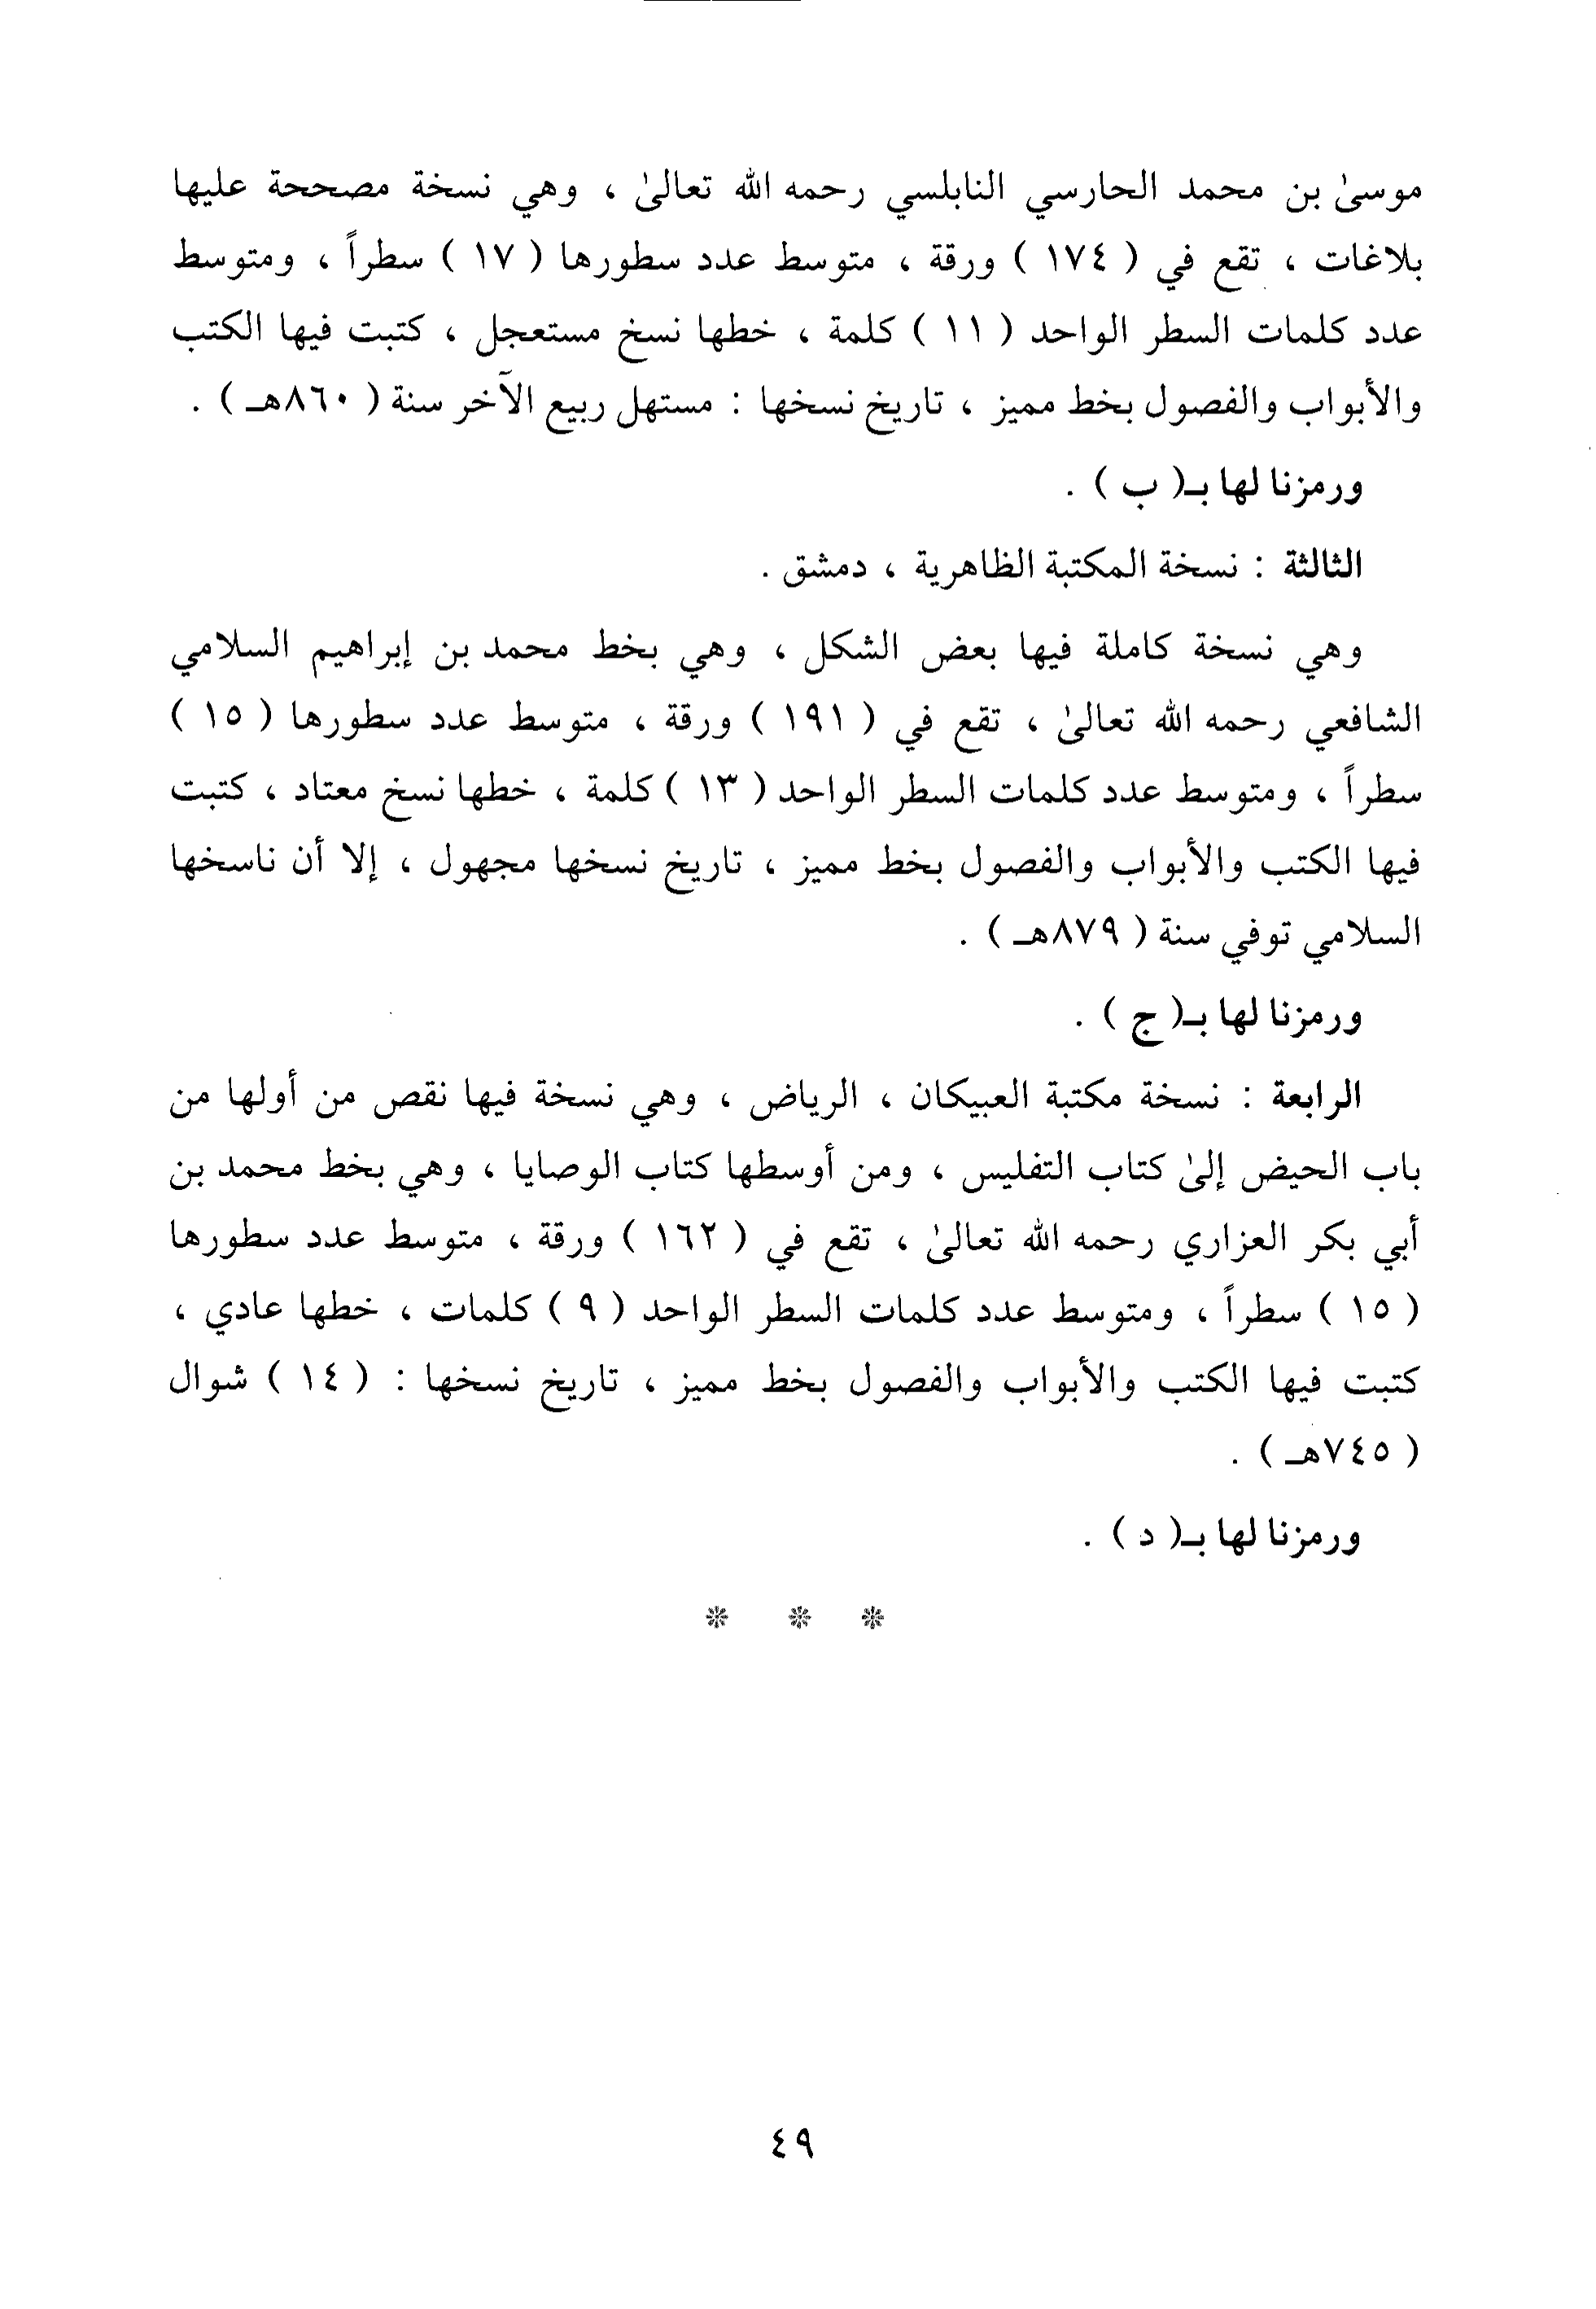 موسىٰ بن محمد الحارسي النابلسي رحمه الله تعالىٰ ، وهي نسخة مصححة عليها
بلاغات ، تقع في ( ١٧٤ ) ورقة ، متوسط عدد سطورها ( ١٧ ) سطراً ، ومتوسط
عدد كلمات السطر الواحد ( ١١ ) كلمة ، خطها نسخ مستعجل ، كتبت فيها الكتب
والأبواب والفصول بخط مميز ، تاريخ نسخها : مستهل ربيع الآخر سنة ( ٨٦٠هـ ) .
ورمزنا لها بـ( ب ) .
الثالثة : نسخة المكتبة الظاهرية ، دمشق .
وهي نسخة كاملة فيها بعض الشكل ، وهي بخط محمد بن إبراهيم السلامي
الشافعي رحمه الله تعالىٰ ، تقع في ( ١٩١ ) ورقة ، متوسط عدد سطورها ( ١٥ )
سطراً ، ومتوسط عدد كلمات السطر الواحد ( ١٣ ) كلمة ، خطها نسخ معتاد ، كتبت
فيها الكتب والأبواب والفصول بخط مميز ، تاريخ نسخها مجهول ، إلا أن ناسخها
السلامي توفي سنة ( ٨٧٩هـ ) .
ورمزنا لها بـ( ج ) .
الرابعة : نسخة مكتبة العبيكان ، الرياض ، وهي نسخة فيها نقص من أولها من
باب الحيض إلىٰ كتاب التفليس ، ومن أوسطها كتاب الوصايا ، وهي بخط محمد بن
أبي بكر العزاري رحمه الله تعالىٰ ، تقع في ( ١٦٢ ) ورقة ، متوسط عدد سطورها
( ١٥ ) سطراً ، ومتوسط عدد كلمات السطر الواحد ( ٩ ) كلمات ، خطها عادي ،
كتبت فيها الكتب والأبواب والفصول بخط مميز ، تاريخ نسخها : ( ١٤ ) شوال
( ٧٤٥هـ ) .
ورمزنا لها بـ( د ) .
* * *
٤٩